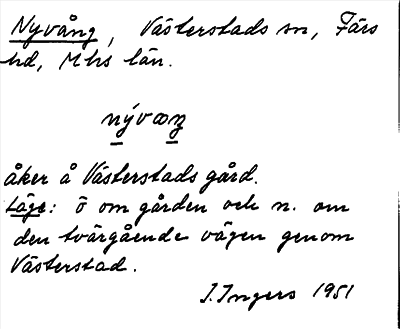 Nyvång, Västerstads sn, Färs
hd, Mhs län.
nývæŋ
åker å Västerstads gård.
Läge: ö om gården och n. om
den tvärgående vägen genom
Västerstad.
I. Ingers 1951